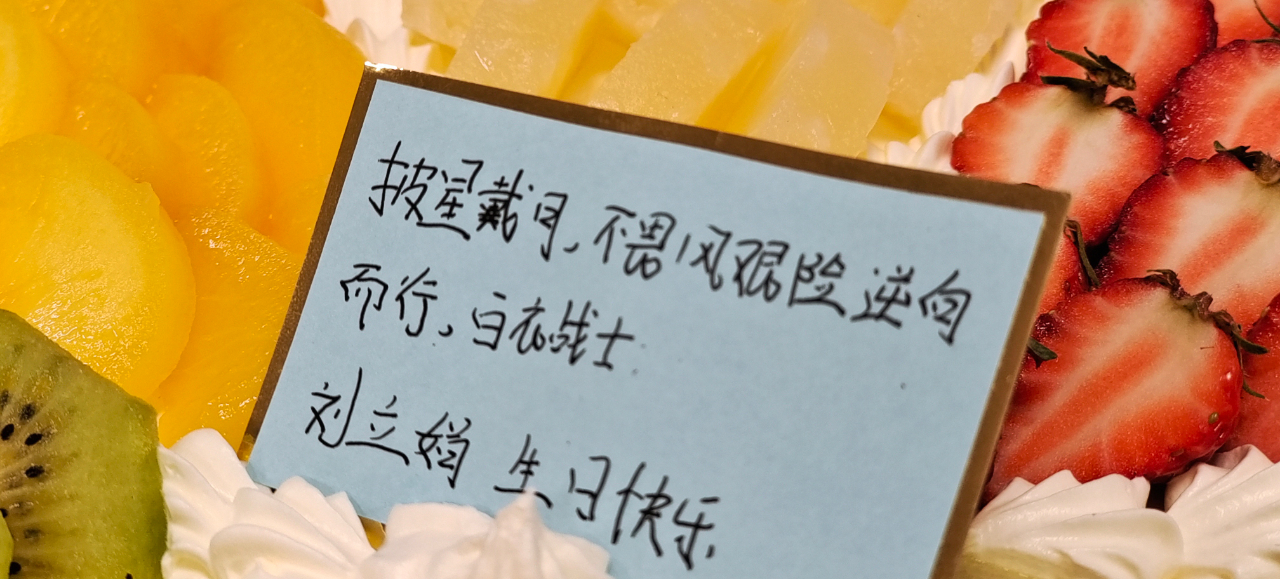 披星戴月,不畏风艰险逆向
而行,白衣战士
刘立娟 生日快乐